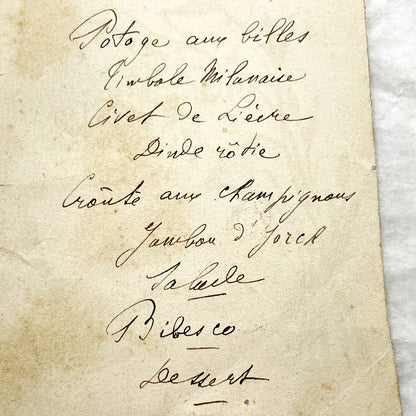 Potage aux billes
Timbale Milanaise
Civet de Lièvre
Dinde rôtie
Croûte aux champignons
Jambon d'Yorck
Salade
Bibesco
Dessert